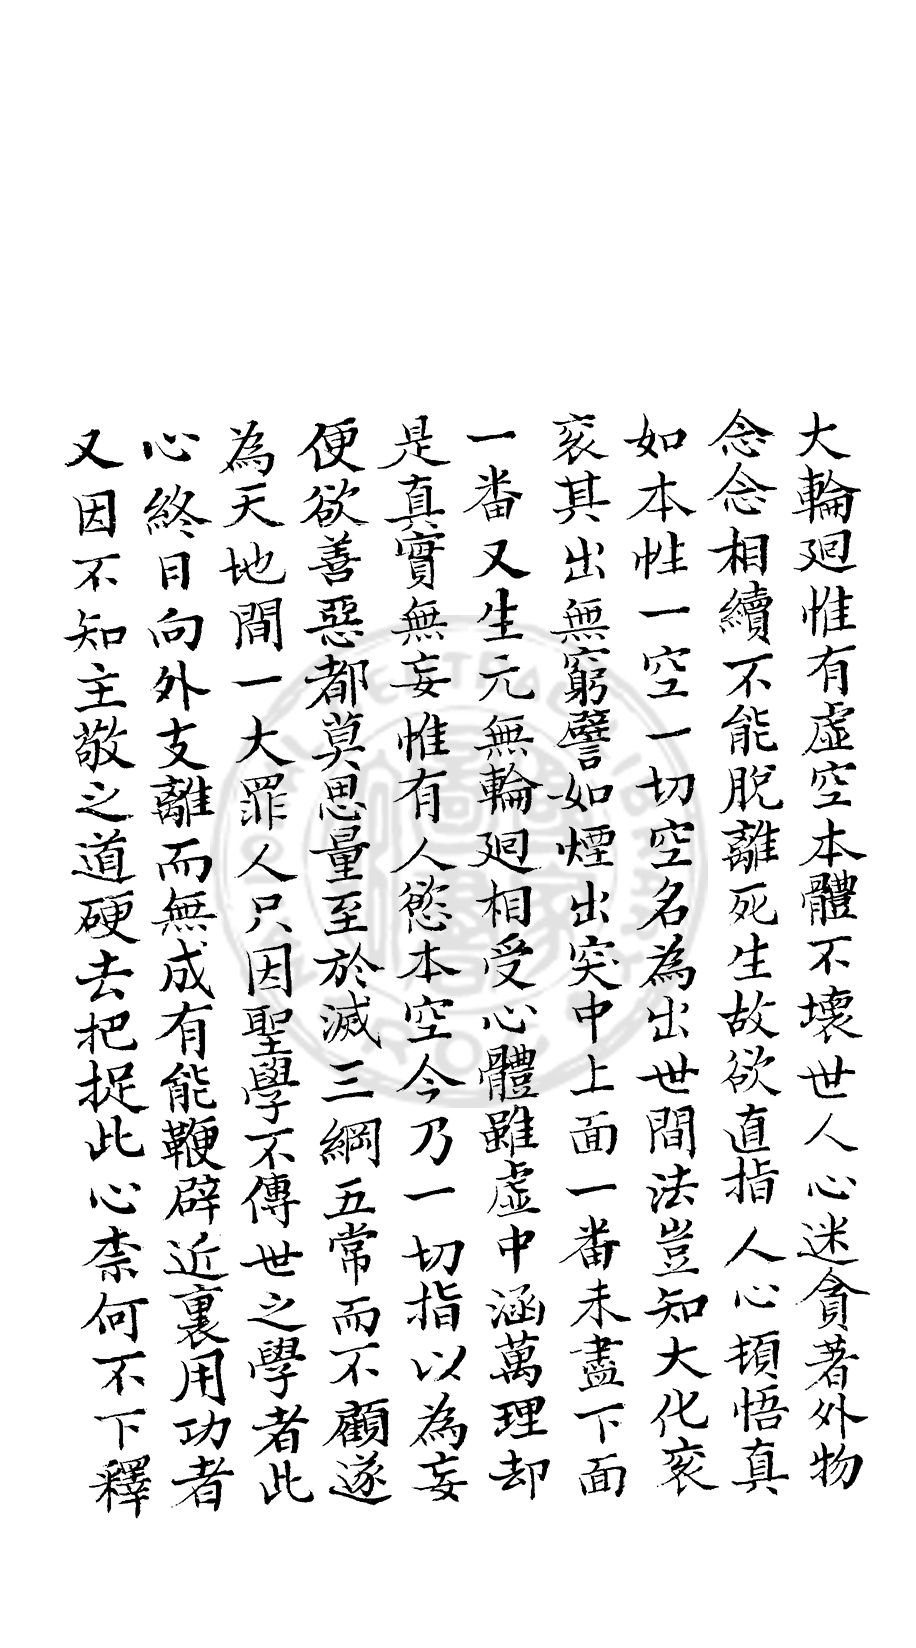 大輪廻惟有虛空本體不壞世人心迷貪著外物
念念相續不能脫離死生故欲直指人心頓悟真
如本性一空一切空名為出世間法豈知大化衮
衮其出無窮譬如煙出突中上面一番未盡下面
一番又生元無輪廻相受心體雖虛中涵萬理却
是真實無妄惟有人慾本空今乃一切指以為妄
便欲善惡都莫思量至於滅三綱五常而不顧遂
為天地間一大罪人只因聖學不傳世之學者此
心終日向外支離而無成有能鞭辟近裏用功者
又因不知主敬之道硬去把捉此心柰何不下釋